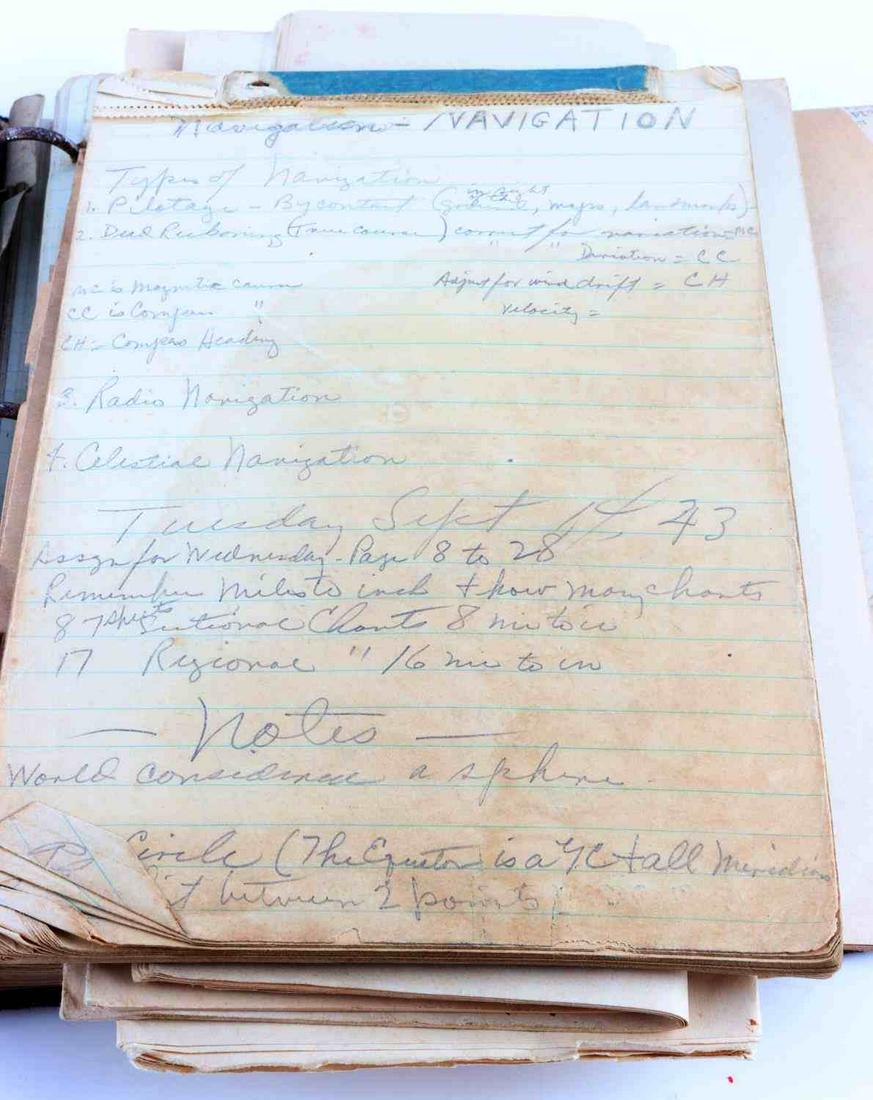 Navigation - NAVIGATION
Types of Navigation
in sight
1. Pilotage - By contact (of the ground, maps, landmarks)
2. Ded Reckoning (True course) correct for variation = MC
" " Deviation = CC
MC is Magnetic course Adjust for wind drift = CH
CC is Compass " velocity =
CH = Compass Heading
3. Radio Navigation
4. Celestial Navigation
Tuesday Sept 14 43
Assgn for Wednesday - Page 8 to 28
Remember miles to inch + how many charts
87 Sectional Charts 8 mi to in
17 Regional " 16 mi to in
— Notes —
World considered a sphere
Circle (The Equator is a G.C. + all Meridians
between 2 points